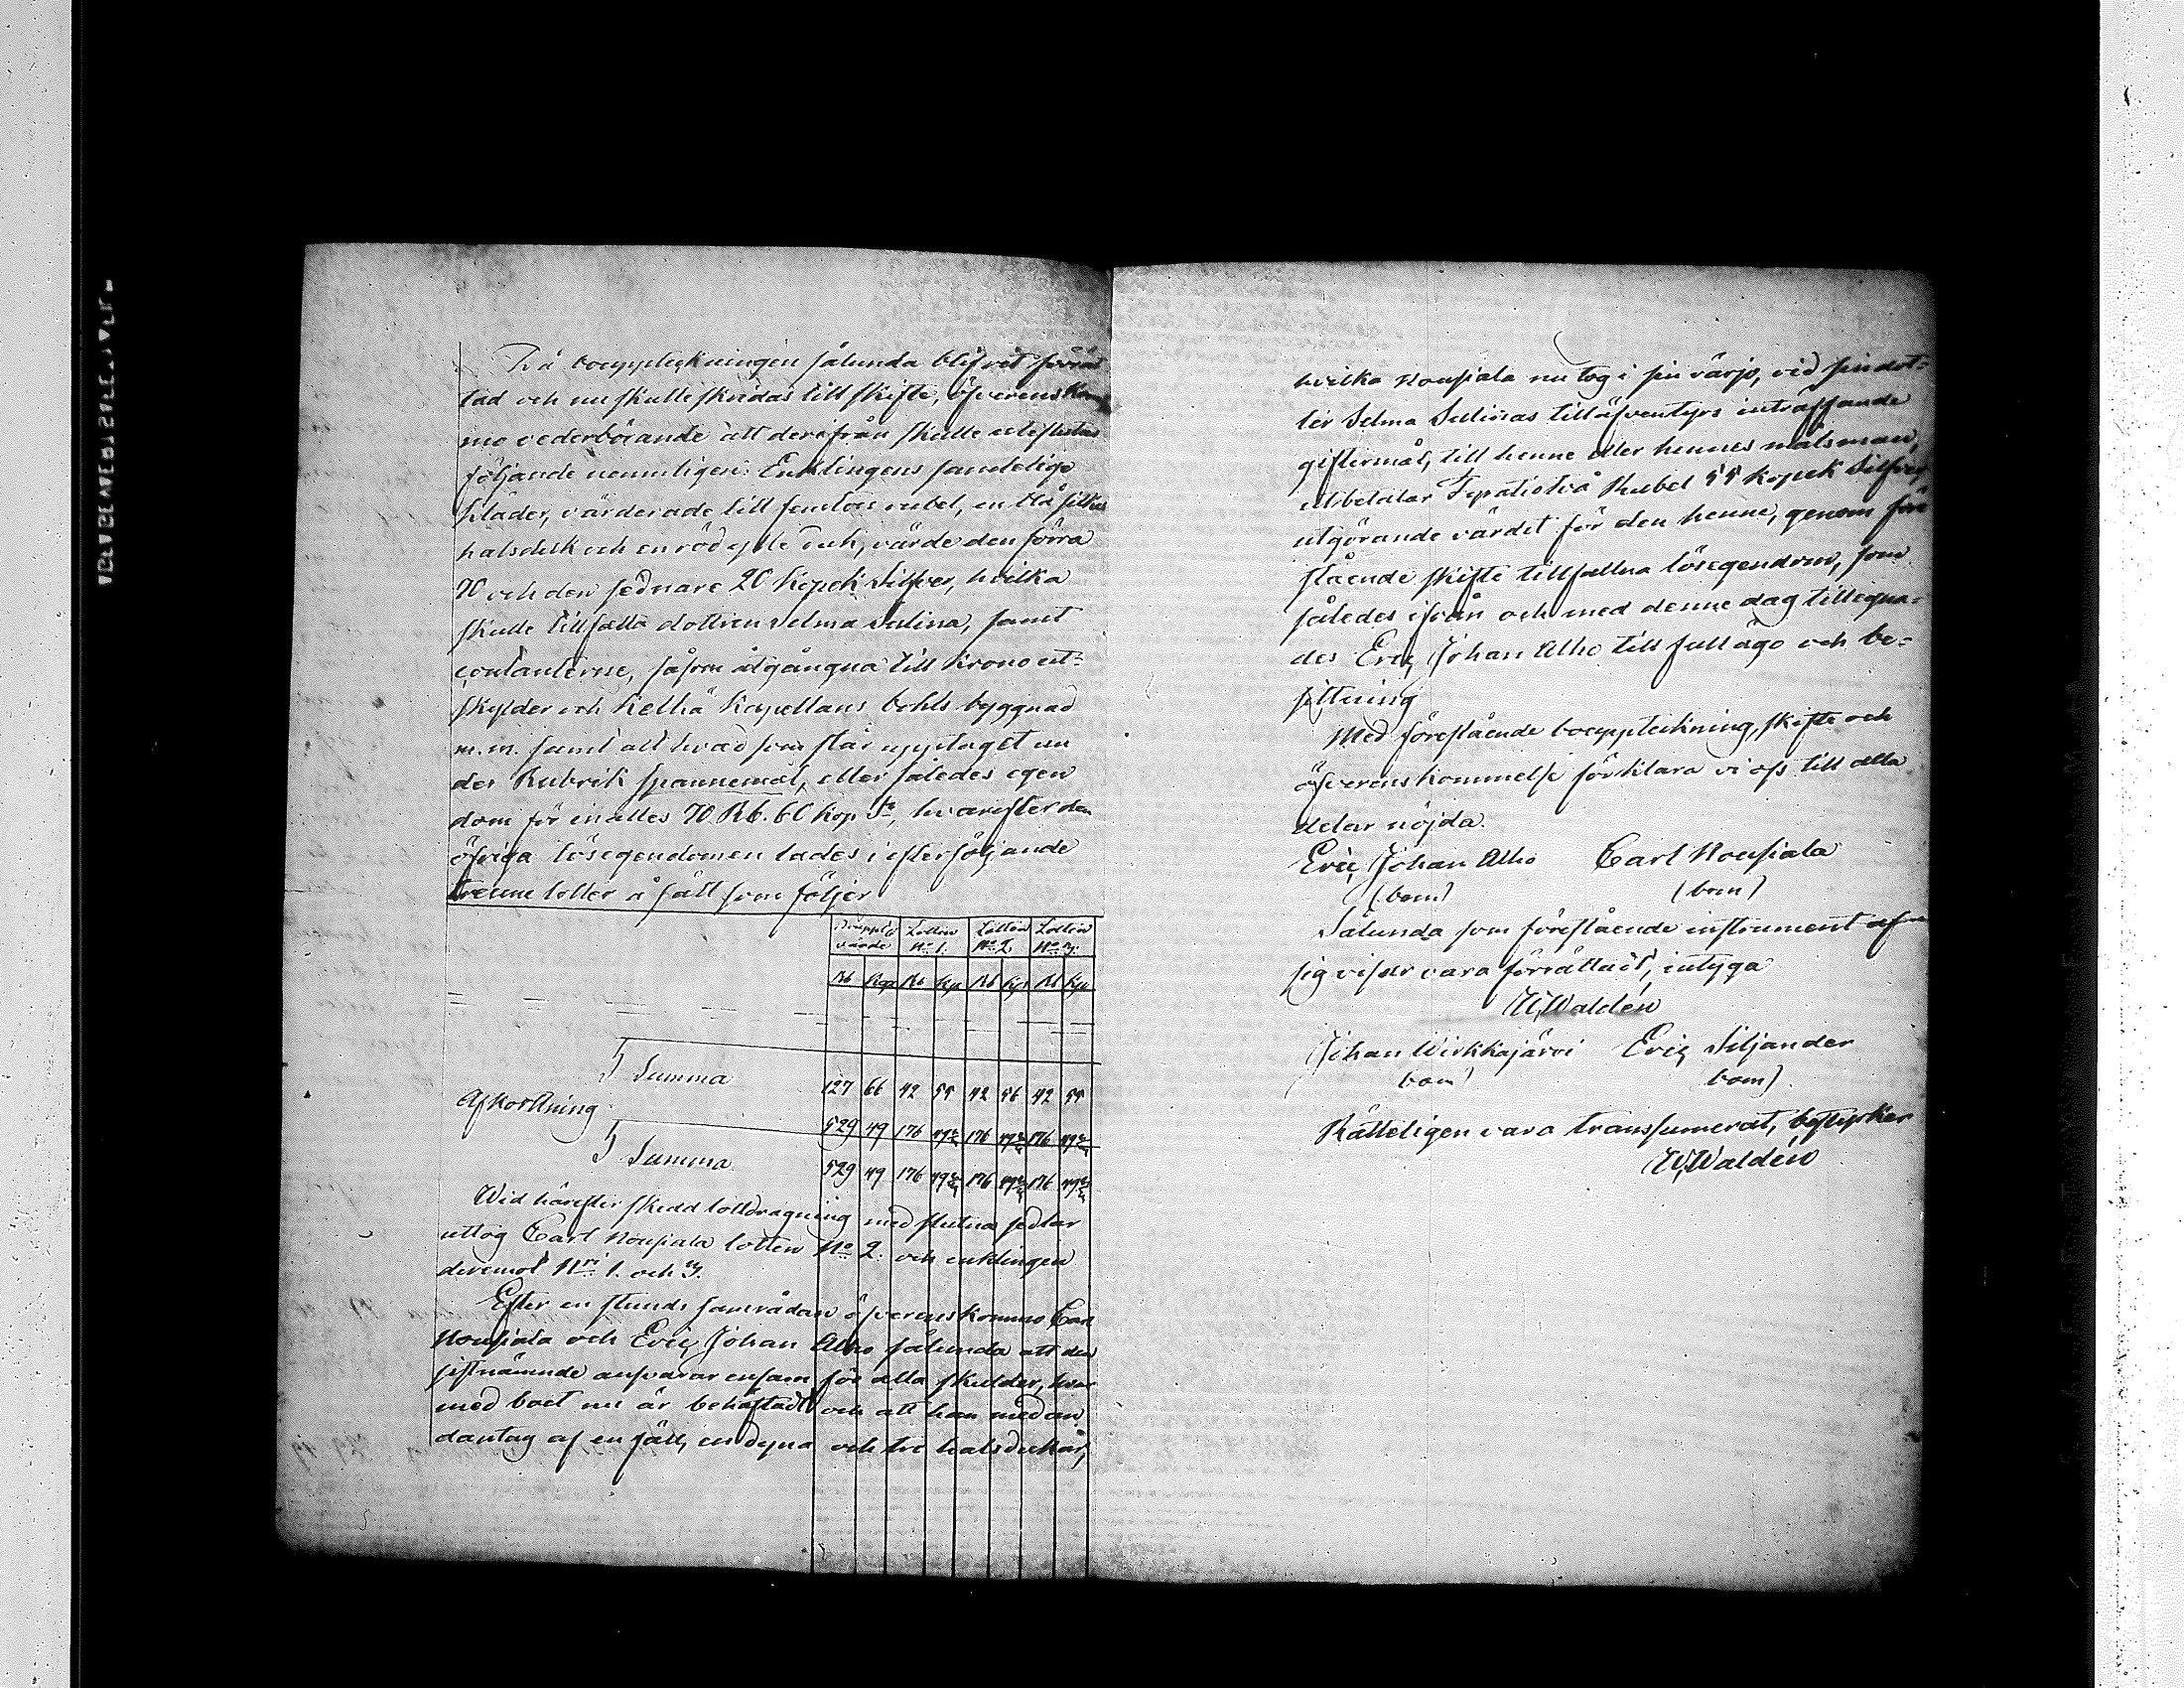 Då bouppteckningen sålunda blifvit förrät
tad och nu skulle skridas till skifte, öfverenskom
mo vederbörande att derifrån skulle uteslutas
följande nemnligen: Enklingens samtelige
kläder, värderade till femton rubel, en blå silkes
halsduk och en röd ylle duk, värde den förra
70 och den sednare 20 Kopek Silfver, hvilka
skulle tillfalla dottren Selma Sulina, samt
contanterne, såsom åtgångna till Krono ut-
skylder och Kelhä Kapellans bohls byggnad
m.m. samt allt hvad som står upptaget un
der Rubrik spannemål, eller således egen
dom för inalles 70 Rb. 60 Kop Sr, hvarefter den
öfriga lösegendomen lades i efterföljande
trenne lotter å sätt som följer
Bouppt:s värde Lotten No 1. Lotten No 2. Lotten No 3.
Rb Kop Rb Kp Rb Kp Rb Kp
S Summa 127 66 42 55 42 56 42 55
Afkortning 529 49 176 49 2/3 176 49 2/3 176 49 2/3
S Summa 529 49 176 49 2/3 176 49 2/3 176 49 2/3
Wid härefter skedd lottdragning med slutna sedlar
uttog Carl Nousiala lotten No 2. och enklingen
deremot Nri 1. och 3.
Efter en stunds samrådan öfverenskommo Carl
Nousiala och Eric Johan Alho sålunda att den
sistnämnde ansvarar ensam för alla skulder, hvar
med boet nu är behäftadt och att han med un
dantag af en fäll, en dyna och tre halsdukar,
hvilka Nousiala nu tog i sin värjo, vid sin dot-
ter Selma Sulinas tilläfventyrs inträffande
giftermål, till henne eller hennes målsman,
utbetalar Fyratiotvå Rubel 55 kopek Silfver,
utgörande värdet för den henne, genom före
stående skifte tillfallna lösegendom, som
således ifrån och med denne dag tillegna-
des Eric Johan Alho till full ägo och be-
sittning
Med förestående bouppteckning, skifte och
öfverenskommelse förklara vi oss till alla
delar nöjda.
Eric Johan Alho Carl Nousiala
(bom) (bom)
Sålunda som förestående instrument af
sig viser vara förrättadt, intyga
W, Waldén
Johan Wirkkajärvi Eric Siljander
bom) bom)
Rätteligen vara transsumerat, bestyrker
W, Waldén